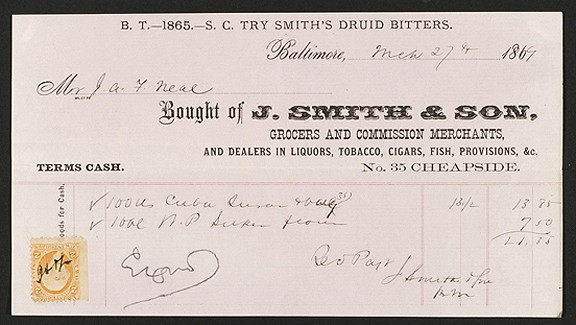 B. T.—1865.—S. C. TRY SMITH'S DRUID BITTERS.
Baltimore, Mch 27th 1869
Mr J A F Neal
Bought of J. SMITH & SON,
GROCERS AND COMMISSION MERCHANTS,
AND DEALERS IN LIQUORS, TOBACCO, CIGARS, FISH, PROVISIONS, &c.
TERMS CASH. No. 35 CHEAPSIDE.
oods for Cash.
100 Cuba 13/2 13 85
1 N. P. 7 50
21.35
Recd Payt
J Smith & Son